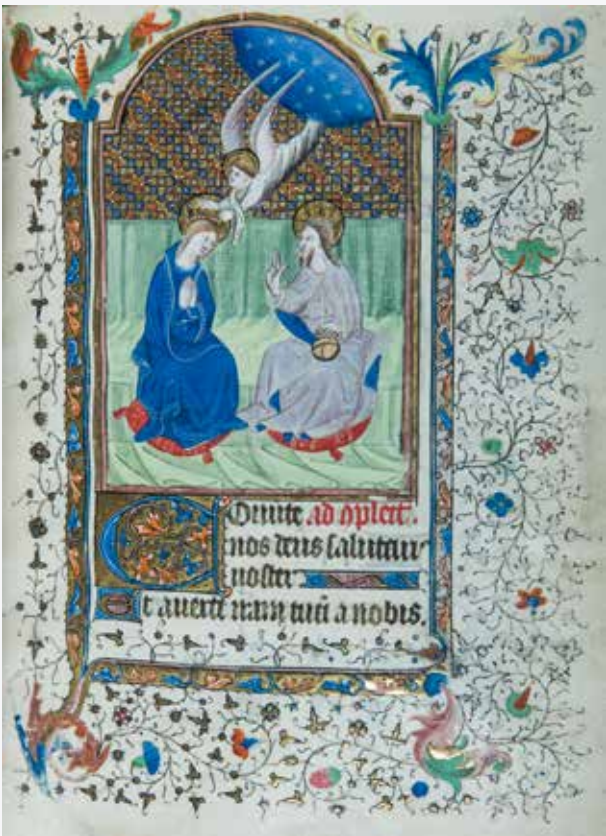 Conuerte ad cplect.
nos deus salutaris
noster
Et auerte iram tuā a nobis.